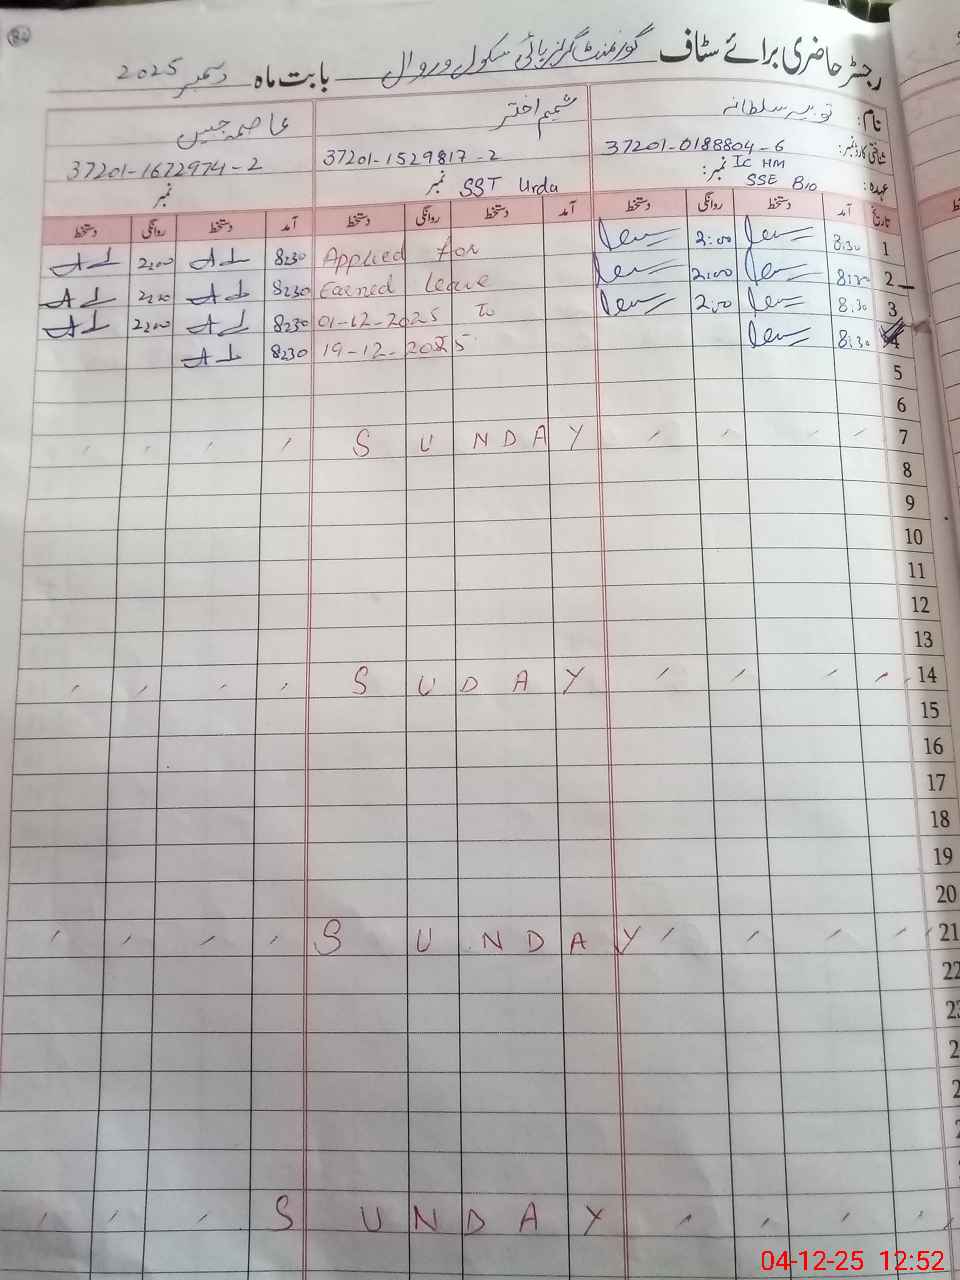 82
رجسٹر حاضری برائے سٹاف گورنمنٹ گرلز ہائی سکول وروال بابت ماہ دسمبر 2025
نام: ثوبیہ سلطانہ شمیم اختر عاصمہ جبیں
شناختی کارڈ نمبر: 37201-0188804-6 37201-1529817-2 37201-1672974-2
عہدہ: نمبر: IC HM SSE Bio نمبر SST Urdu نمبر
تاریخ آمد دستخط روانگی دستخط آمد دستخط روانگی دستخط آمد دستخط روانگی دستخط
1 8:30 2:00 Applied for 8:30 2:00
2 8:30 2:00 Earned leave 8:30 2:00
3 8:30 2:00 01-12-2025 To 8:30 2:00
4 8:30 19-12-2025 8:30
5
6
7 SUNDAY
8
9
10
11
12
13
14 SUDAY
15
16
17
18
19
20
21 SUNDAY
22
SUNDAY
04-12-25 12:52